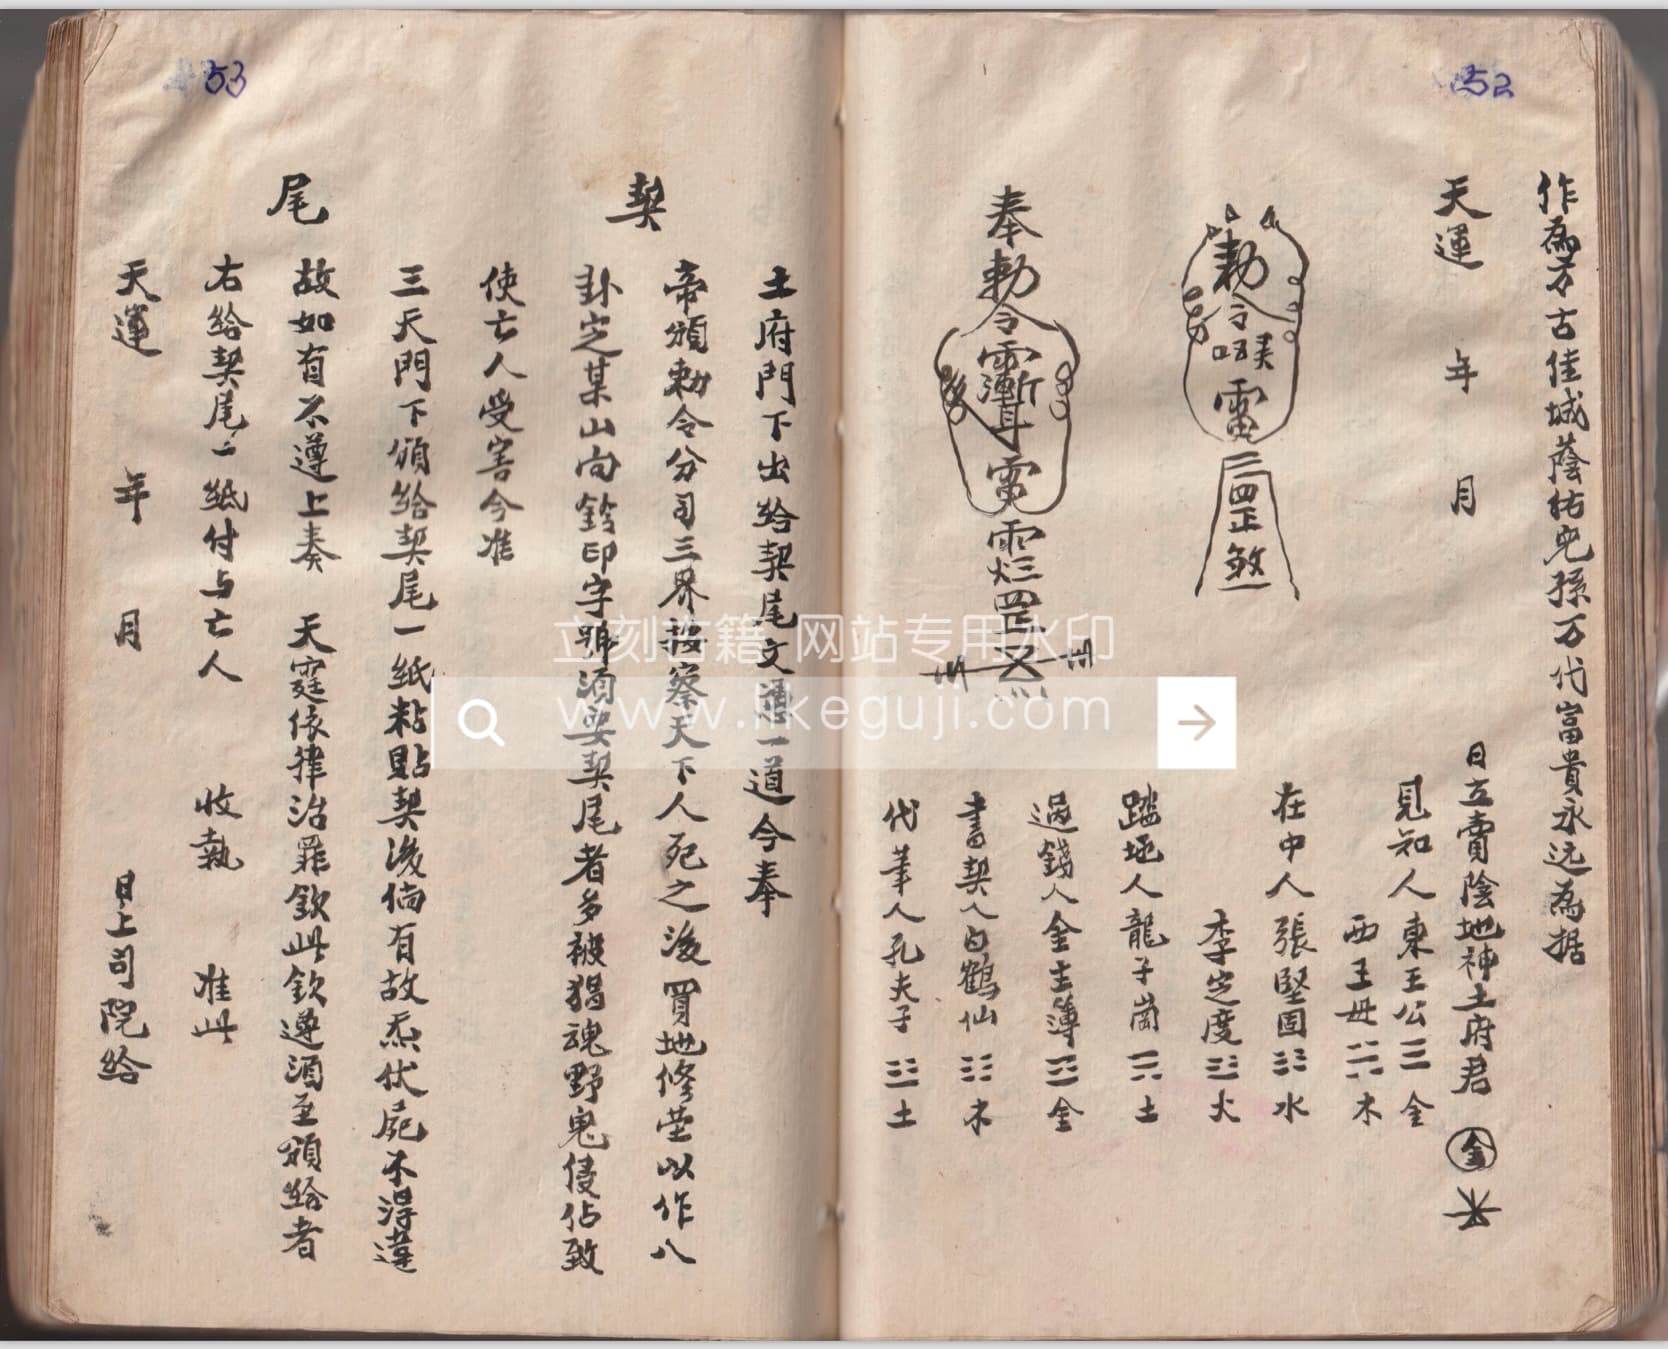 52
作為万古佳城蔭祐兒孫万代富貴永远為据
天運 年 月 日立賣陰地神土府君 金
見知人東王公 金
西王母 木
在中人張堅固 水
李定度 火
踏地人龍子崗 土
過錢人金主簿 金
書契人白鶴仙 木
代筆人孔夫子 土
勅令
奉勅令
53
契
尾
土府門下出給契尾文憑一道今奉
帝頒勅令分司三界按察天下人死之後買地修塋以作八
卦定某山向鈴印字號須要契尾者多被猖魂野鬼侵佔致
使亡人受害今准
三天門下頒給契尾一纸粘貼契後倘有故炁伏屍不得違
故如有不遵上奏 天霆依律治罪欽此欽遵須至頒給者
右給契尾一紙付与亡人 收執 准此
天運 年 月 日上司院給
立刻古籍 网站专用水印
www.likeguji.com